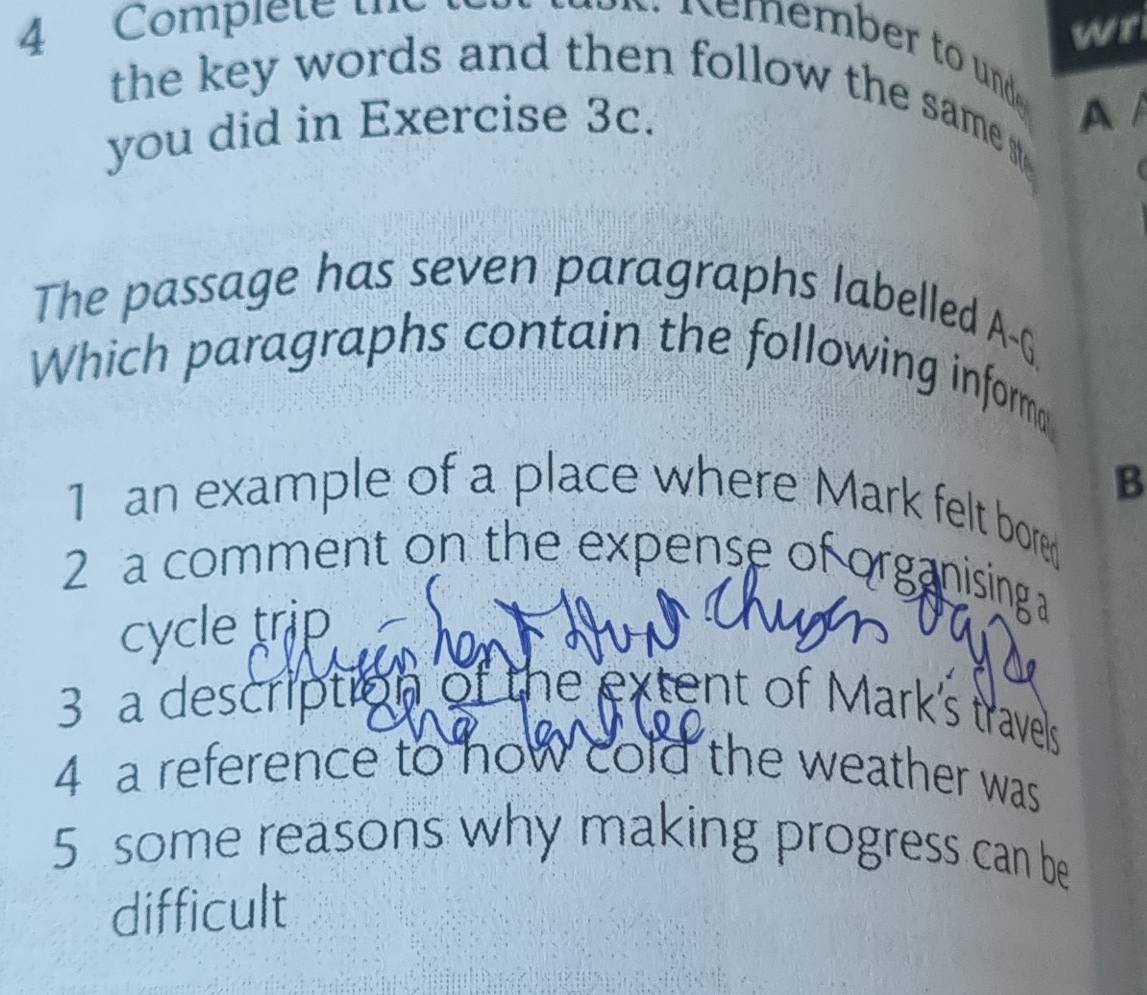 4 Complete the test task. Remember to unde
the key words and then follow the same ste
you did in Exercise 3c.
The passage has seven paragraphs labelled A-G.
Which paragraphs contain the following informa
1 an example of a place where Mark felt bored
2 a comment on the expense of organising a
cycle trip
3 a description of the extent of Mark's travels
4 a reference to how cold the weather was
5 some reasons why making progress can be
difficult
wri
A
B